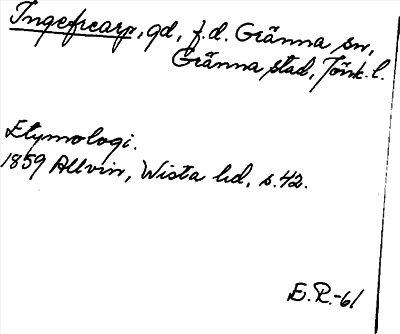 Ingefrearp, gd, f.d. Gränna sn,
Gränna stad, Jönk. l.
Etymologi.
1859 Allvin, Wista hd, s. 42.
E.R.-61